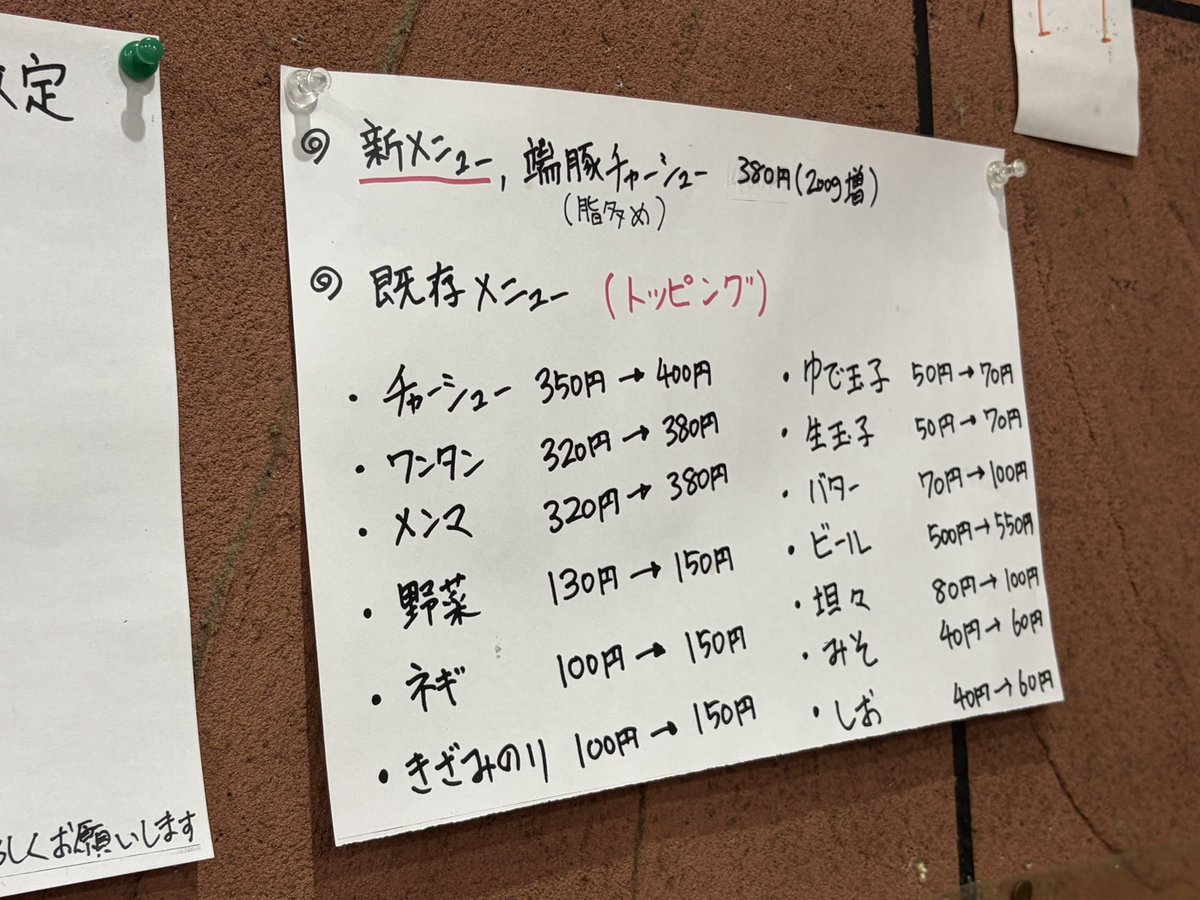 定
しくお願いします
◎ 新メニュー, 端豚チャーシュー 380円(200g増)
(脂多め)
◎ 既存メニュー (トッピング)
・チャーシュー 350円→400円
・ワンタン 320円→380円
・メンマ 320円→380円
・野菜 130円→150円
・ネギ 100円→150円
・きざみのり 100円→150円
・ゆで玉子 50円→70円
・生玉子 50円→70円
・バター 70円→100円
・ビール 500円→550円
・坦々 80円→100円
・みそ 40円→60円
・しお 40円→60円